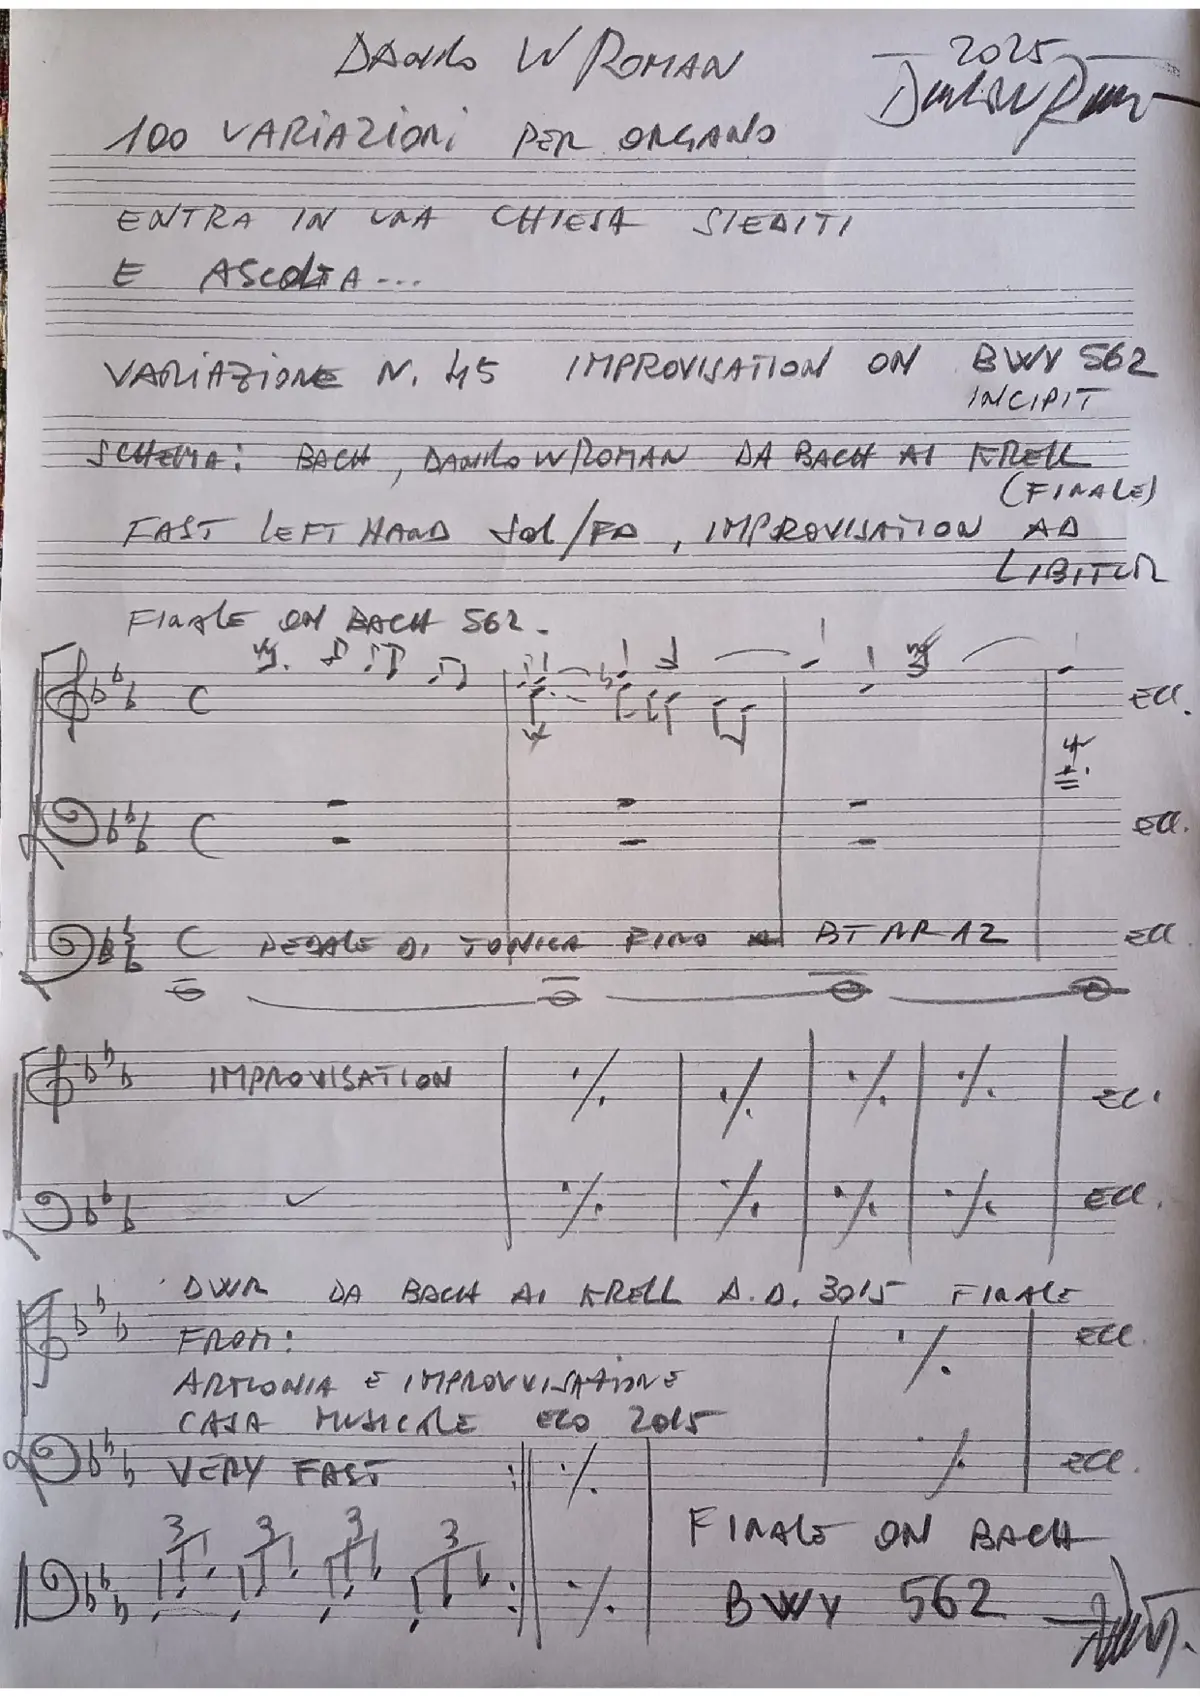 DANILO W ROMAN
2025
100 VARIAZIONI PER ORGANO
ENTRA IN UNA CHIESA SIEDITI
E ASCOLTA...
VARIAZIONE N. 45 IMPROVISATION ON BWV 562
INCIPIT
SCHEMA: BACH, DANILO W ROMAN DA BACH AI KRELL
(FINALE)
FAST LEFT HAND SOL/FA, IMPROVISATION AD
LIBITUM
FINALE ON BACH 562.
C
ECC.
C
ECC.
C PEDALE DI TONICA FINO A BT NR 12
ECC.
IMPROVISATION
ECC.
ECC.
DWR DA BACH AI KRELL A.D. 3015 FINALE
FROM:
ECC.
ARMONIA E IMPROVVISAZIONE
CASA MUSICALE ECO 2015
VERY FAST
ECC.
3 3 3 3
FINALE ON BACH
BWV 562